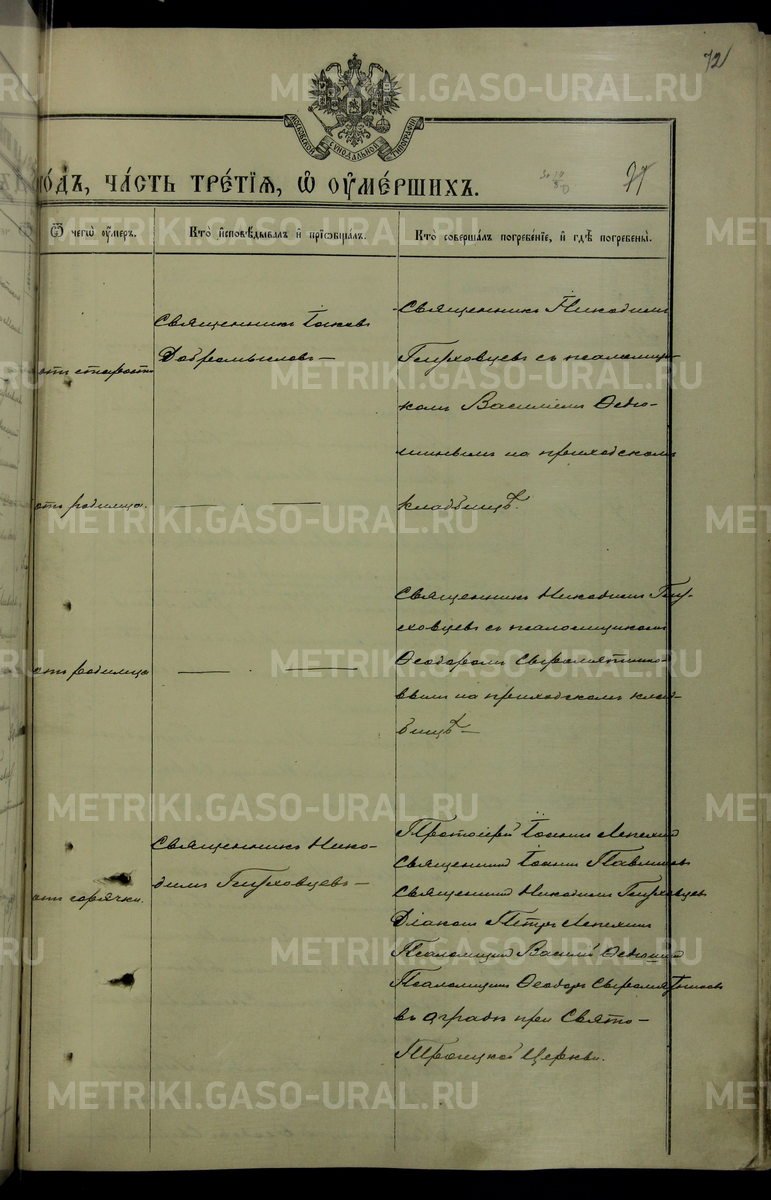 72
МОСКОВСКОЙ СУНОДАЛЬНОЙ ТИПОГРАФІИ
го́дъ, ча́сть тре́тїѧ, ѡ҆ ᲂу҆ме́ршихъ.
Ѿ чегѡ̀ ᲂу҆́мер.
Кто̀ и҆сповѣ́дывалъ и҆ прїѡбща́лъ.
Кто̀ соверша́лъ погребе́нїе, и҆ гдѣ̀ погребены̀.
отъ старости
Священникъ Іаковъ
Добромысловъ —
Священникъ Никодимъ
Глуховцевъ съ псаломщи-
комъ Василіемъ Ѳедю-
шинымъ на приходскомъ
кладбищѣ.
отъ родимца.
— —
отъ родимца
— —
Священникъ Никодимъ Глу-
ховцевъ съ псаломщикомъ
Ѳеодоромъ Сыромятнико-
вымъ на приходскомъ клад-
бищѣ —
отъ горячки.
Священникъ Нико-
димъ Глуховцевъ —
Протоіерей Іоаннъ Лепехинъ
Священникъ Іоаннъ Павлиновъ
Священникъ Никодимъ Глуховцевъ
Діаконъ Петръ Лепехинъ
Псаломщикъ Василій Ѳедюшинъ
Псаломщикъ Ѳеодоръ Сыромятниковъ
въ оградѣ при Свято-
Троицкой Церкви.
METRIKI.GASO-URAL.RU